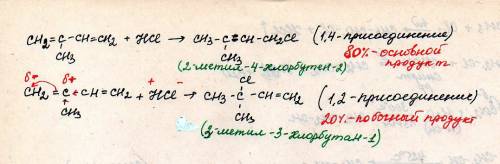 CH2=C-CH=CH2 + HCl → CH3-C=CH-CH2Cl (1,4-присоединение)
CH3 CH3 80%-основной
(2-метил-4-хлорбутен-2) продукт
δ- δ+ + - Cl
CH2=C-CH=CH2 + HCl → CH3-C-CH=CH2 (1,2-присоединение)
CH3 CH3 20%-побочный продукт
(3-метил-3-хлорбутан-1)